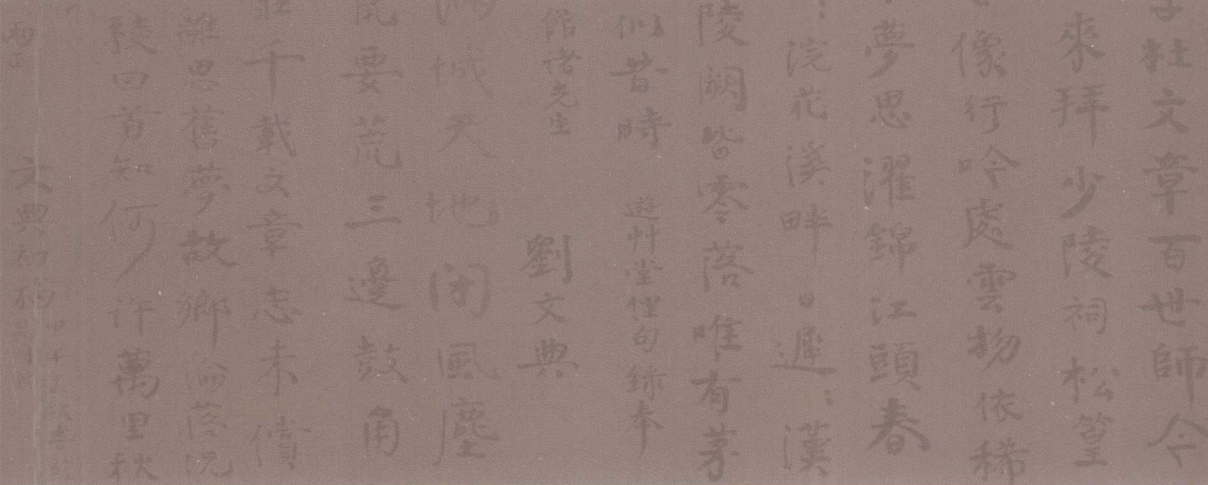 杜文章百世師今
來拜少陵祠松篁
像行吟處雲物依稀
夢思濯錦江頭春
浣花溪畔日遲〻漢
陵闕皆零落唯有茅
似昔時 遊艸堂俚句錄奉
館諸先生
劉文典
滿城天地閉風塵
要荒三邊鼓角
千載文章志未償
離思舊夢故鄉淪落
稜回首知何許萬里秋
文典初稿